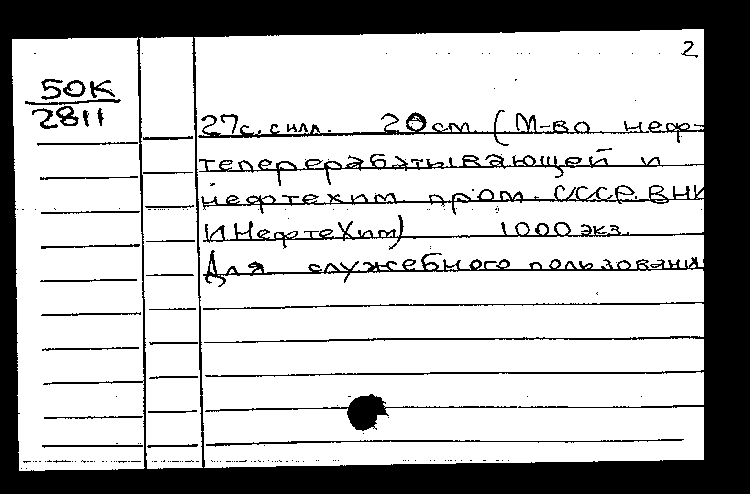 2
50К
2811
27с. с илл. 20 см. (М-во неф-
теперерабатывающей и
нефтехим пром. СССР. ВНИ
ИНефтеХим) 1000 экз.
Для служебного пользовани